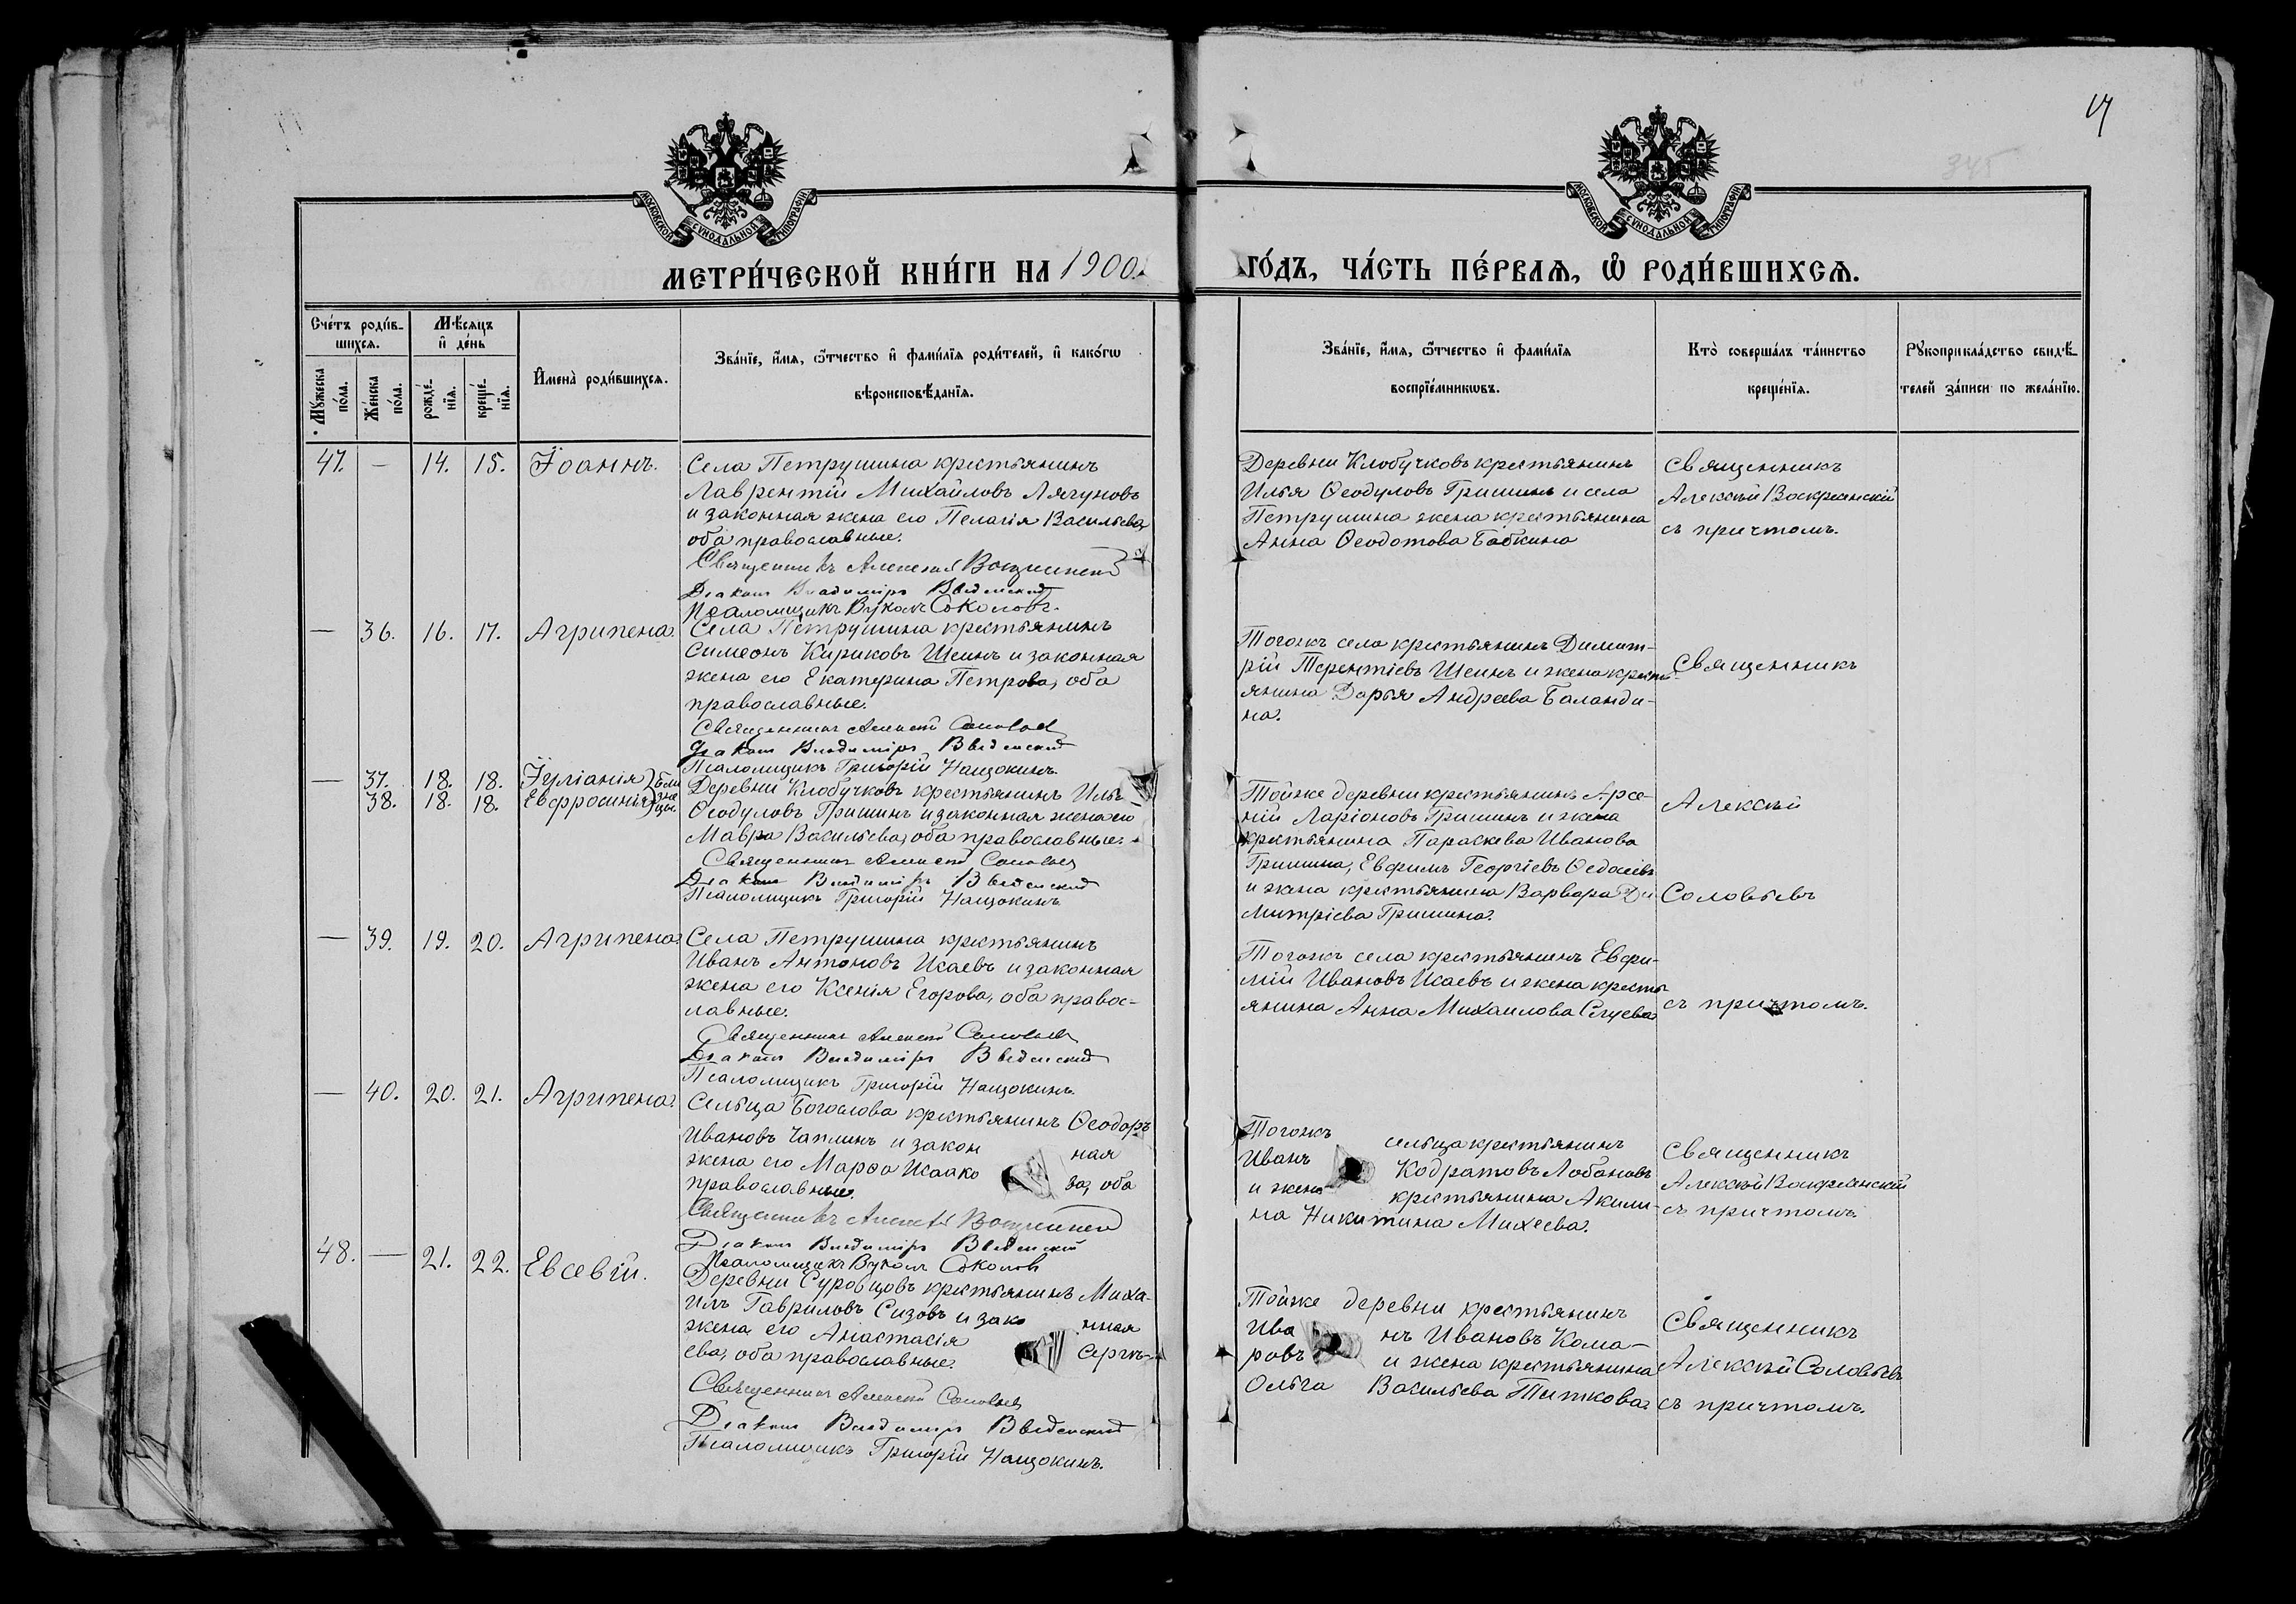 17
345
МОСКОВСКОЙ СѴНОДАЛЬНОЙ ТИПОГРАФІИ
МОСКОВСКОЙ СѴНОДАЛЬНОЙ ТИПОГРАФІИ
МЕТРИ́ЧЕСКОЙ КНИ́ГИ НА 1900
ГО́ДЪ, ЧА́СТЬ ПЕ́РВАѦ, Ѽ РОДИ́ВШИХСѦ.
Сче́тъ роди́в-
шихсѧ.
Мꙋ́жеска по́ла.
Же́нска по́ла.
Мѣ́сѧцъ
и҆ де́нь
рожде́-
нїѧ.
креще́-
нїѧ.
И҆мена̀ роди́вшихсѧ.
Зва́нїе, и҆́мѧ, ѻ҆́тчество и҆ фами́лїѧ роди́телей, и҆ како́гѡ
вѣроисповѣ́данїѧ.
Зва́нїе, и҆́мѧ, ѻ҆́тчество и҆ фами́лїѧ
воспрїе́мникѡвъ.
Кто̀ соверша́лъ та́инство
креще́нїѧ.
Рꙋкоприкла́дство свидѣ́-
телей за́писи по жела́нїю.
47. — 14. 15. Іоаннъ.
Села Петрушина крестьянинъ
Лаврентій Михайловъ Лягуновъ
и законная жена его Пелагія Васильева
оба православные.
Священникъ Алексей Воскресенскій
Діаконъ Владиміръ Введенскій
Псаломщикъ Вуколъ Соколовъ.
Деревни Клобучковъ крестьянинъ
Илья Ѳеодуловъ Гришинъ и села
Петрушина жена крестьянина
Анна Ѳеодотова Бабкина
Священникъ
Алексѣй Воскресенскій
съ причтомъ.
— 36. 16. 17. Агрипена.
Села Петрушина крестьянинъ
Симеонъ Кириковъ Шеинъ и законная
жена его Екатерина Петрова, оба
православные.
Священникъ Алексей Соловьев
Діаконъ Владиміръ Введенскій
Псаломщикъ Григорій Нащокинъ.
Тогожъ села крестьянинъ Димит-
рій Терентіевъ Шеинъ и жена кресть-
янина Дарья Андреева Баланди-
на.
Священникъ
— 37. 18. 18. Іуліанія } близ-
38. 18. 18. Евфросинія } нецы.
Деревни Клобучковъ крестьянинъ Илья
Ѳеодуловъ Гришинъ и законная жена его
Мавра Васильева, оба православные.
Священникъ Алексей Соловьев
Діаконъ Владиміръ Введенскій
Псаломщикъ Григорій Нащокинъ
Тойже деревни крестьянинъ Арсе-
ній Ларіоновъ Гришинъ и жена
крестьянина Параскева Иванова
Гришина, Евфимъ Георгіевъ Ѳедосеевъ
и жена крестьянина Варвара Ди-
митріева Гришина.
Алексѣй
Соловьевъ
— 39. 19. 20. Агрипена.
Села Петрушина крестьянинъ
Иванъ Антоновъ Исаевъ и законная
жена его Ксенія Егорова, оба правос-
лавные.
Священникъ Алексей Соловьев
Діаконъ Владиміръ Введенскій
Псаломщикъ Григорій Нащокинъ.
Тогожъ села крестьянинъ Евфи-
мій Ивановъ Исаевъ и жена кресть-
янина Анна Михаилова
съ причтомъ.
— 40. 20. 21. Агрипена.
Сельца Богослова крестьянинъ Ѳеодоръ
Ивановъ Чаплинъ и законная
жена его Марѳа Исаакова, оба
православные.
Священникъ Алексей Воскресенскій
Діаконъ Владиміръ Введенскій
Псаломщикъ Вуколъ Соколовъ
Тогожъ сельца крестьянинъ
Иванъ Кодратовъ Лобановъ
и жена крестьянина Акили-
на Никитина Михеева.
Священникъ
Алексѣй Воскресенскій
съ причтомъ.
48. — 21. 22. Евсевій.
Деревни Суровцовъ крестьянинъ Миха-
илъ Гавриловъ Сизовъ и законная
жена его Анастасія Сергѣ-
ева, оба православные.
Священникъ Алексей Соловьев
Діаконъ Владиміръ Введенскій
Псаломщикъ Григорій Нащокинъ.
Тойже деревни крестьянинъ
Иванъ Ивановъ Кома-
ровъ и жена крестьянина
Ольга Васильева Титкова.
Священникъ
Алексѣй Соловьевъ
съ причтомъ.